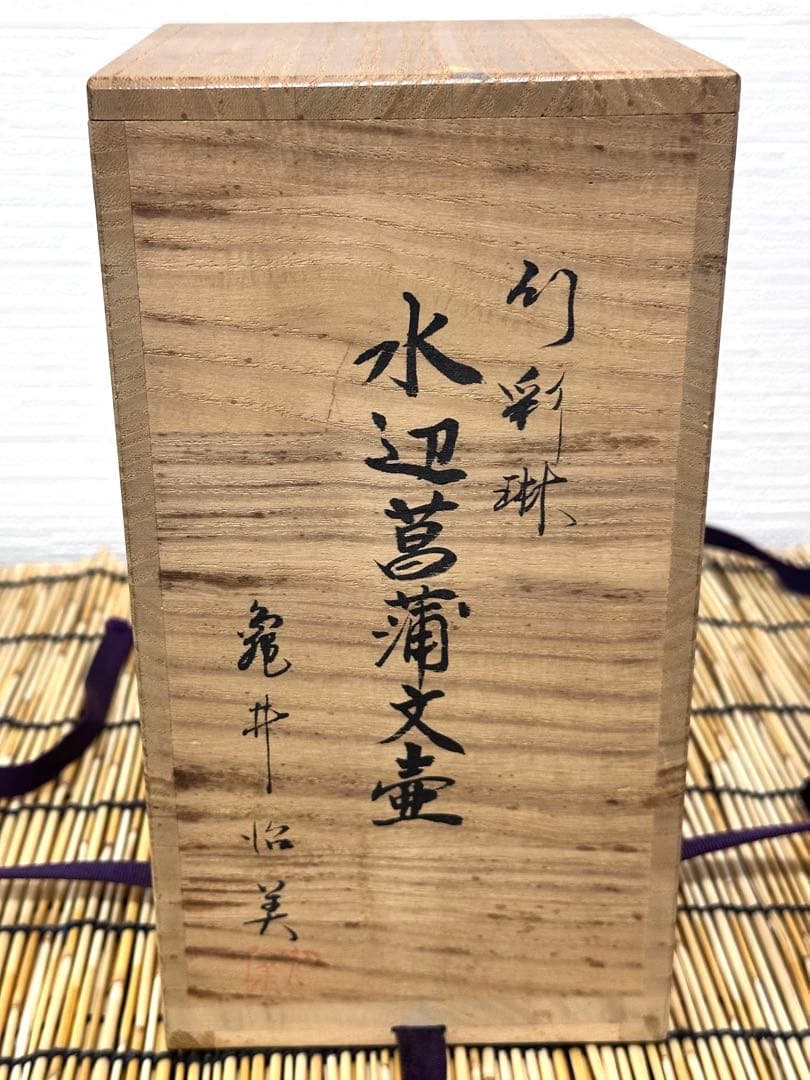 彩琳
水辺菖蒲文壷
龜井怡美